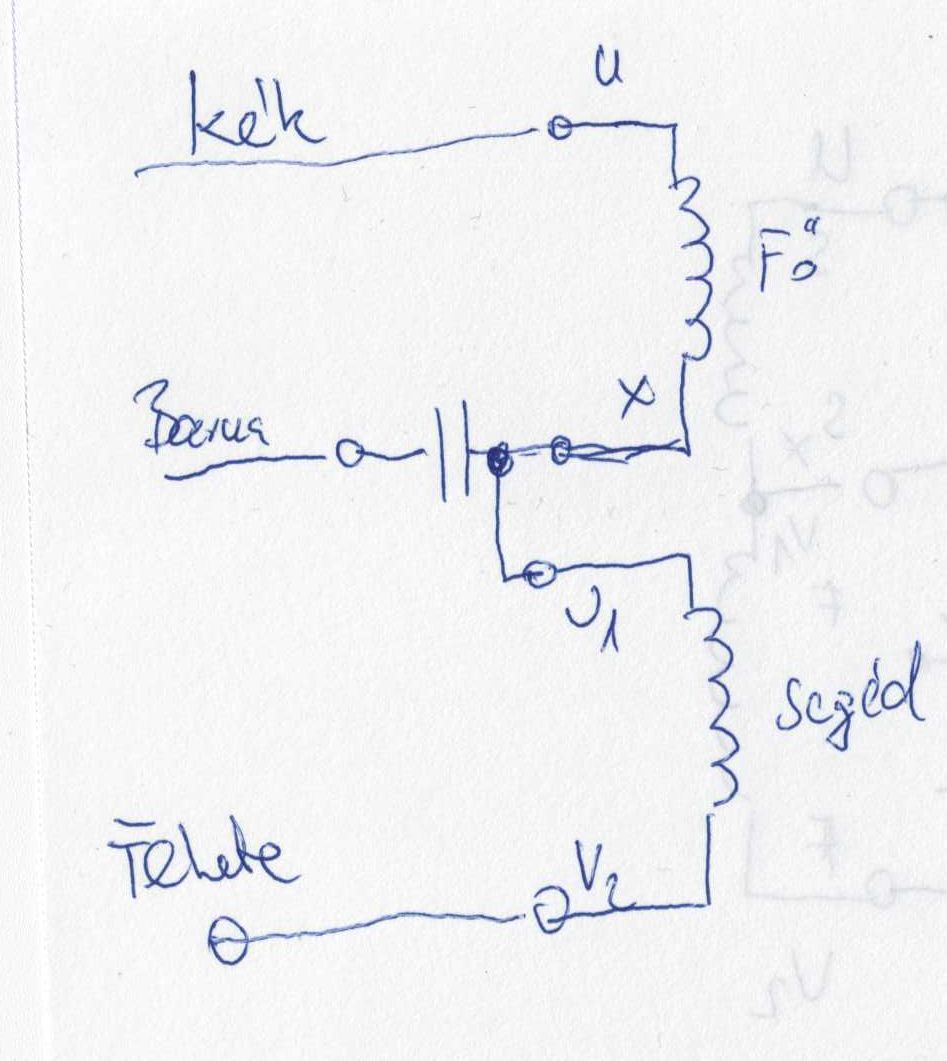 U
Kék
Fő
X
Barna
V1
Segéd
Fekete
V2